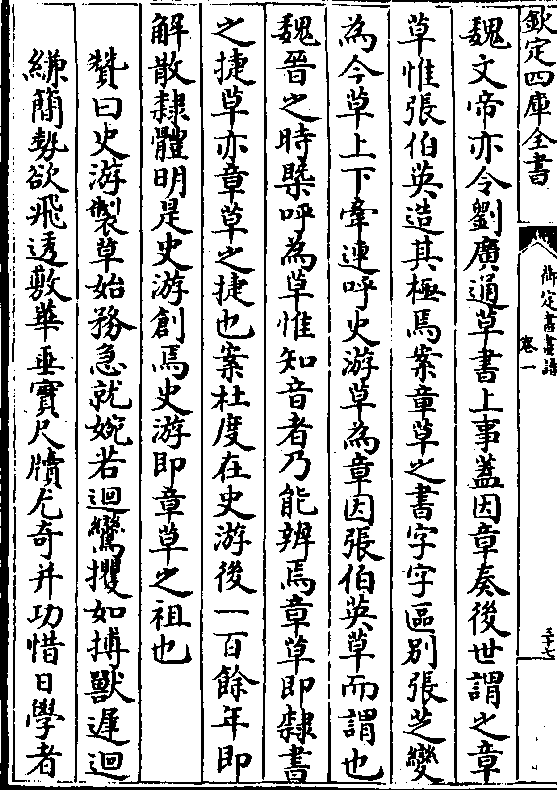 欽定四庫全書
御定書畫譜
卷一
三十七
魏文帝亦令劉廣通草書上事蓋因章奏後世謂之章
草惟張伯英造其極焉案章草之書字字區别張芝變
為今草上下牽連呼史游草為章因張伯英草而謂也
魏晉之時槩呼為草惟知音者乃能辨焉章草即隸書
之捷草亦章草之捷也案杜度在史游後一百餘年即
解散隸體明是史游創焉史游即章草之祖也
贊曰史游製草始務急就婉若迴鸞攫如搏獸遲迴
縑簡勢欲飛透敷華垂實尺牘尤奇并功惜日學者